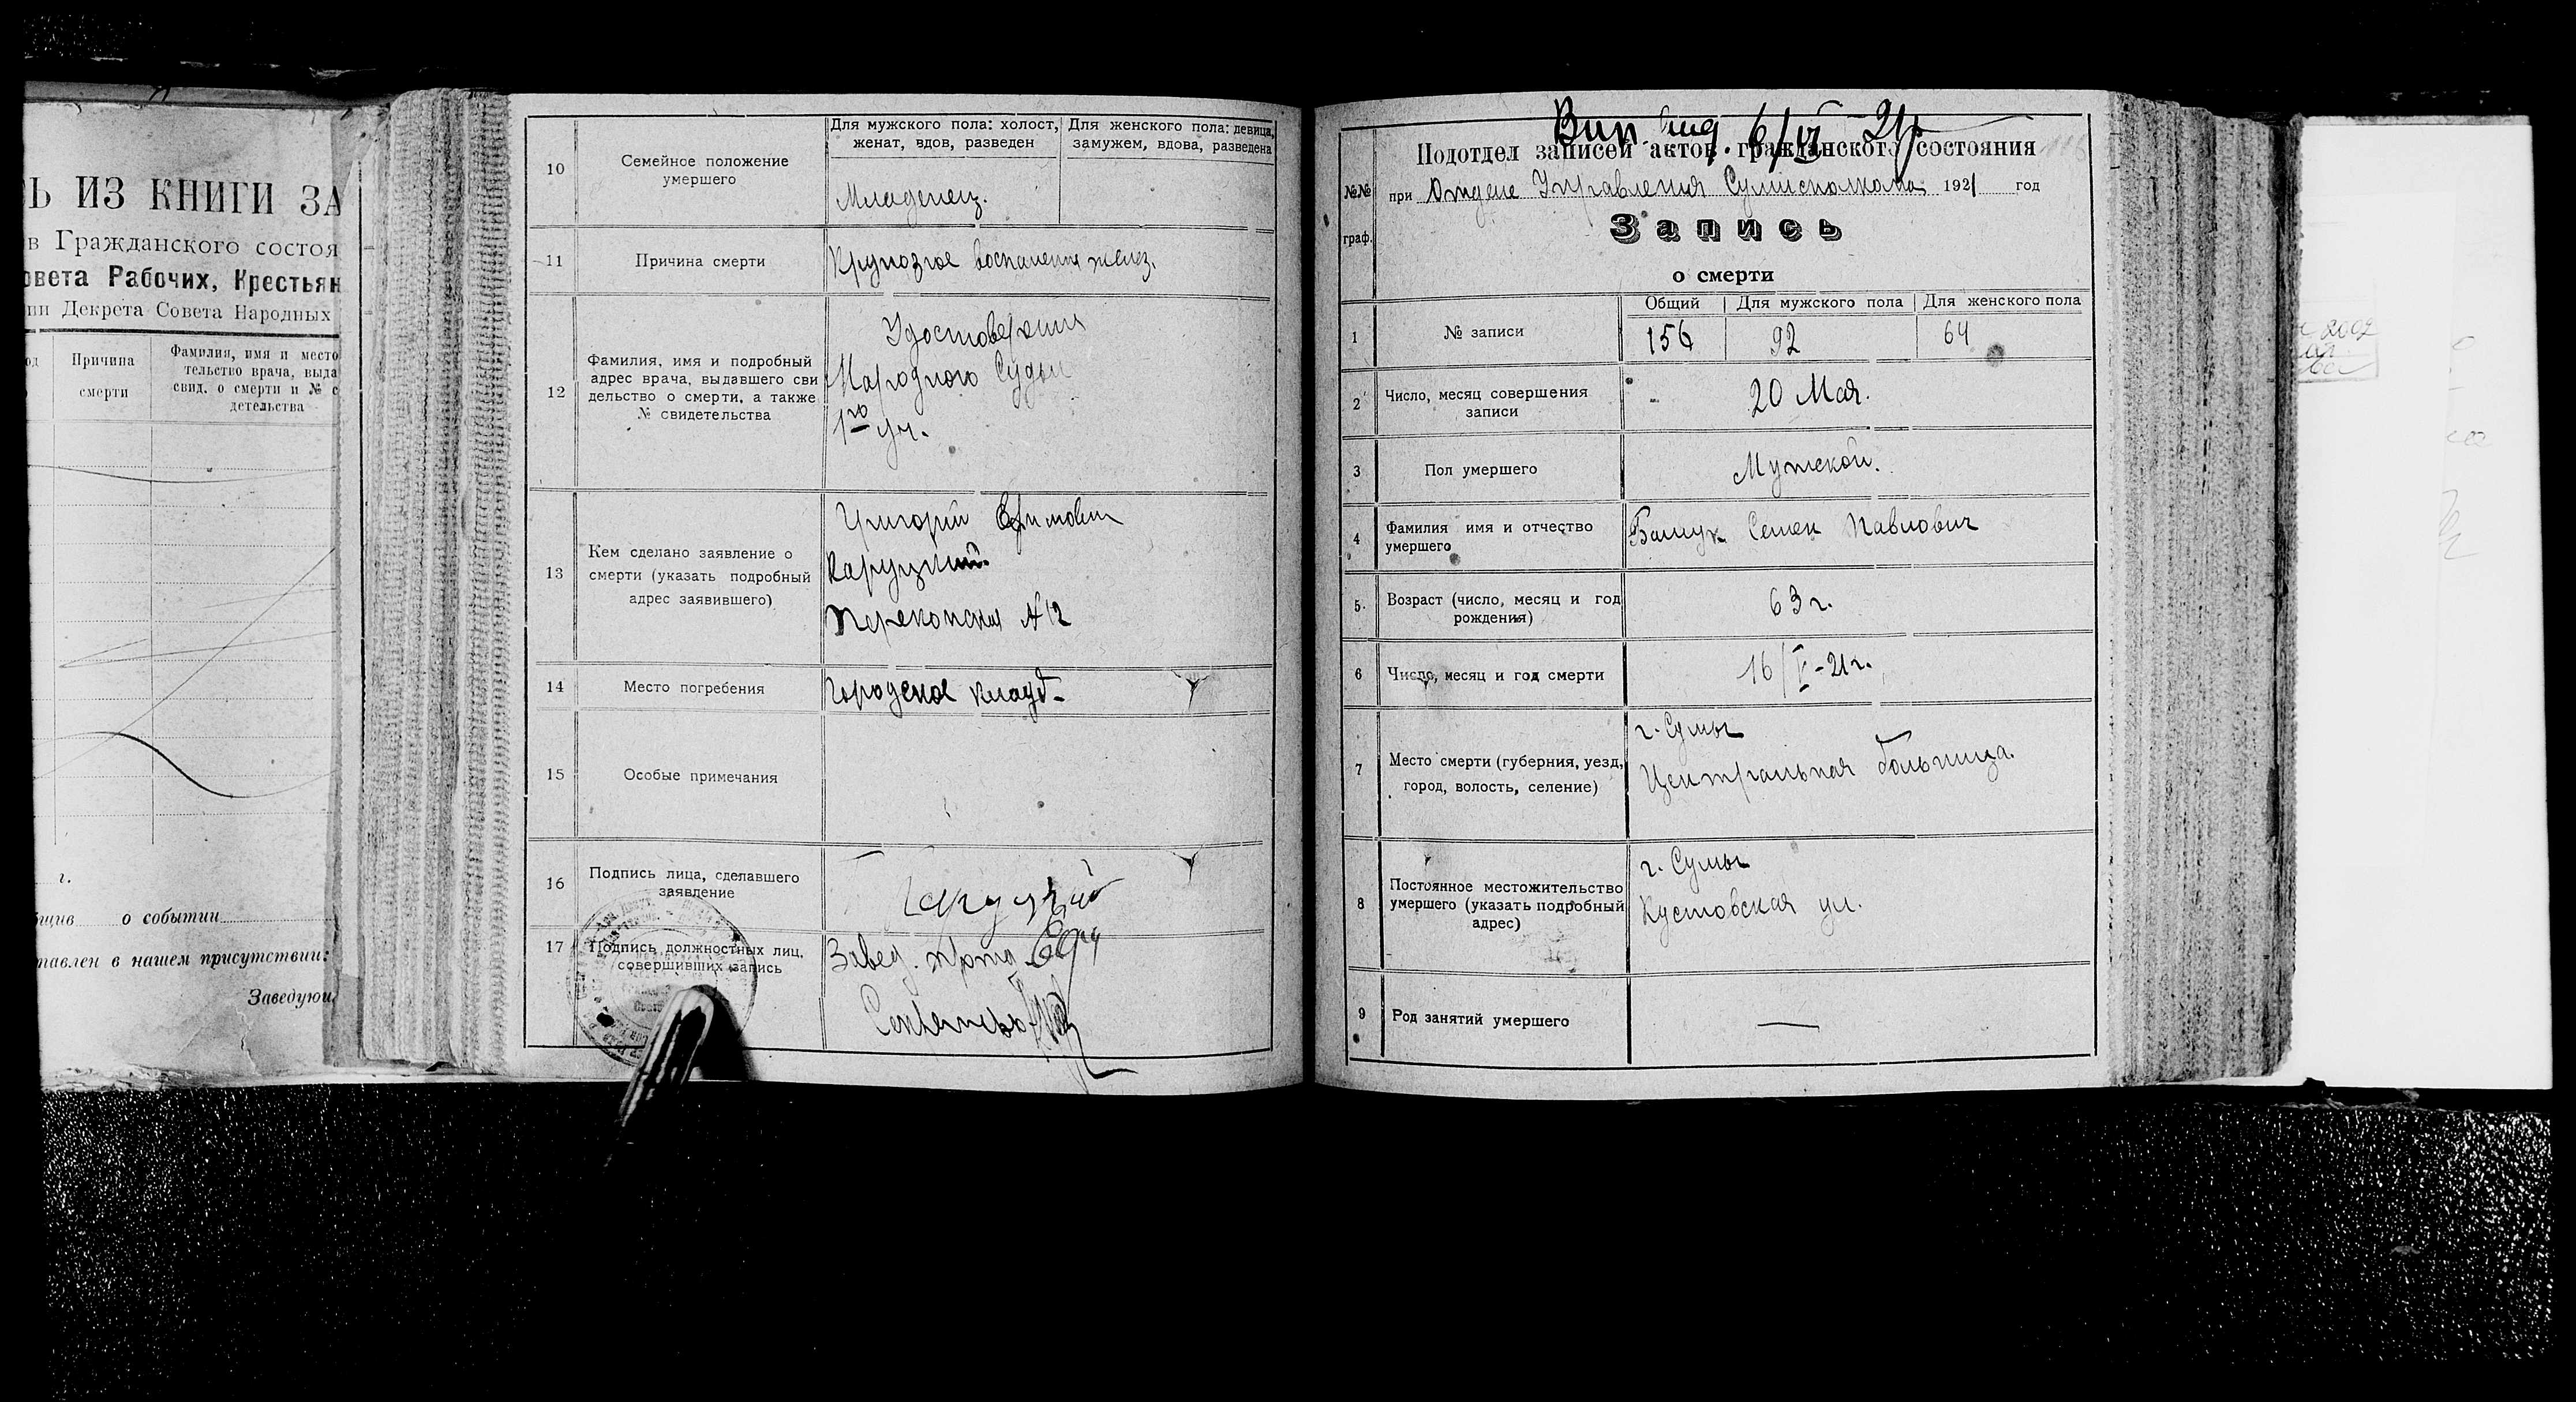 Ь ИЗ КНИГИ ЗА
в Гражданского состоя
овета Рабочих, Крестьян
ии Декрета Совета Народных
Причина смерти
Фамилия, имя и место
тельство врача, выда
свид. о смерти и № с
детельства
г.
бщив о событии
тавлен в нашем присутствии:
Заведующ
10
Семейное положение
умершего
Для мужского пола: холост,
женат, вдов, разведен
Для женского пола: девица,
замужем, вдова, разведена
Младенец.
11
Причина смерти
Крупозное воспаление желез.
12
Фамилия, имя и подробный
адрес врача, выдавшего сви
дельство о смерти, а также
№ свидетельства
Удостоверения
Народного Судьи
1го уч.
13
Кем сделано заявление о
смерти (указать подробный
адрес заявившего)
Григорий Ефимович
Каруцкий
Перекопская № 12
14
Место погребения
Городское кладб-
15
Особые примечания
16
Подпись лица, сделавшего
заявление
17
Подпись должностных лиц,
совершивших запись
Завед. п/отд
№№
граф.
6/VI 21г
Подотдел записей актов гражданского состояния
при Отделе Управления Сумисполкома 1921 год
Запись
о смерти
Общий
Для мужского пола
Для женского пола
1
№ записи
156
92
64
2
Число, месяц совершения
записи
20 Мая.
3
Пол умершего
Мужской.
4
Фамилия имя и отчество
умершего
Башук Семен Павлович
5.
Возраст (число, месяц и год
рождения)
63 г.
6
Число, месяц и год смерти
16/V-21г.
7
Место смерти (губерния, уезд,
город, волость, селение)
г. Сумы
Центральная больница.
8
Постоянное местожительство
умершего (указать подробный
адрес)
г. Сумы
Кустовская ул.
9
Род занятий умершего
—